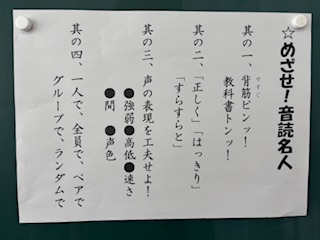 ☆めざせ！音読名人
其の一、背筋ピンッ！
せすじ
教科書トンッ！
其の二、「正しく」「はっきり」
「すらすらと」
其の三、声の表現を工夫せよ！
●強弱●高低●速さ
●間　●声色
其の四、一人で、全員で、ペアで
グループで、ランダムで